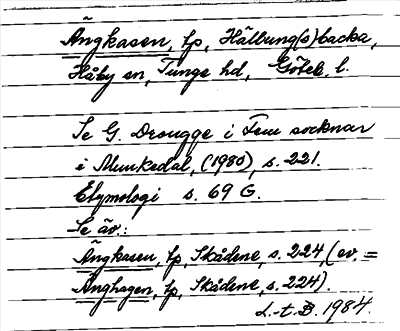 Ängkasen, tp, Hällung(s)backa,
Håby sn, Tunge hd, Göteb. l.
Se G. Drougge i Fem socknar
i Munkedal, (1980), s. 221.
Etymologi s. 69 G.
Se äv.:
Ängkasen, tp, Skådene, s. 224, (ev. =
Änghagen, tp, Skådene, s. 224).
L.-t. B. 1984.